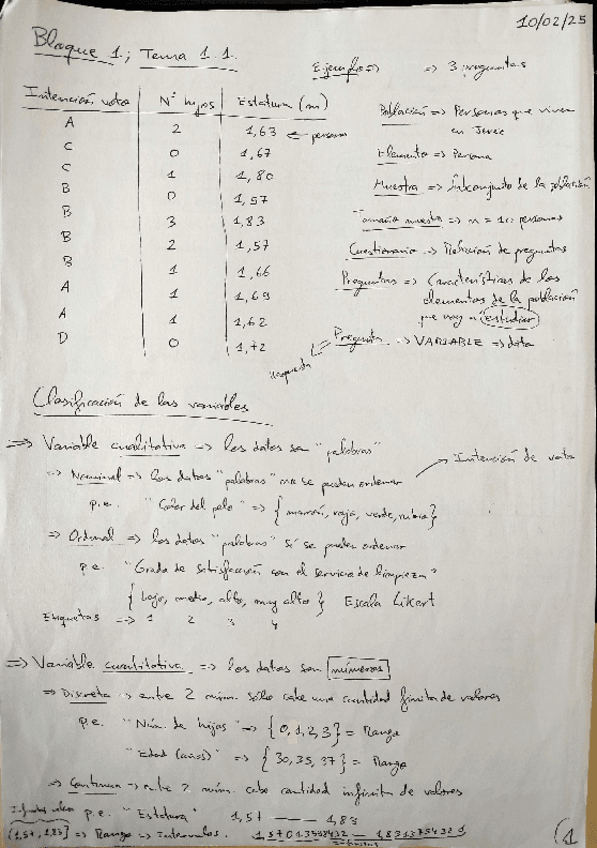 10/02/25
Bloque 1; Tema 1.1.
Ejemplo => => 3 preguntas
Intención voto | Nº hijos | Estatura (m)
A | 2 | 1,63 <- persona
C | 0 | 1,67
C | 1 | 1,80
B | 0 | 1,57
B | 3 | 1,83
B | 2 | 1,57
B | 1 | 1,66
A | 1 | 1,69
A | 1 | 1,62
D | 0 | 1,72
Población => Personas que viven
en Jerez
Elemento => Persona
Muestra => Subconjunto de la población
Tamaño muestra => n = 10 personas
Cuestionario -> Relación de preguntas
Preguntas => Características de los
elementos de la población
que voy a estudiar
Pregunta -> VARIABLE => dato
respuesta
Clasificación de las variables
=> Variable cualitativa -> los datos son "palabras"
-> Nominal -> los datos "palabras" no se pueden ordenar -> Intención de voto
p.e. "Color del pelo" => {marrón, rojo, verde, rubio}
=> Ordinal => los datos "palabras" sí se pueden ordenar
p.e. "Grado de satisfacción con el servicio de limpieza"
{bajo, medio, alto, muy alto} Escala Likert
Etiquetas -> 1 2 3 4
=> Variable cuantitativa => los datos son números
=> Discreta -> entre 2 núm. sólo cabe una cantidad finita de valores
p.e. "Núm. de hijos" => {0,1,2,3} = Rango
"Edad (años)" => {30,35,37} = Rango
-> Continua -> entre 2 núm. cabe cantidad infinita de valores
Infinitos valores p.e. "Estatura" 1,57 —— 1,83
[1,57, 1,83] => Rango -> Intervalos.
(1